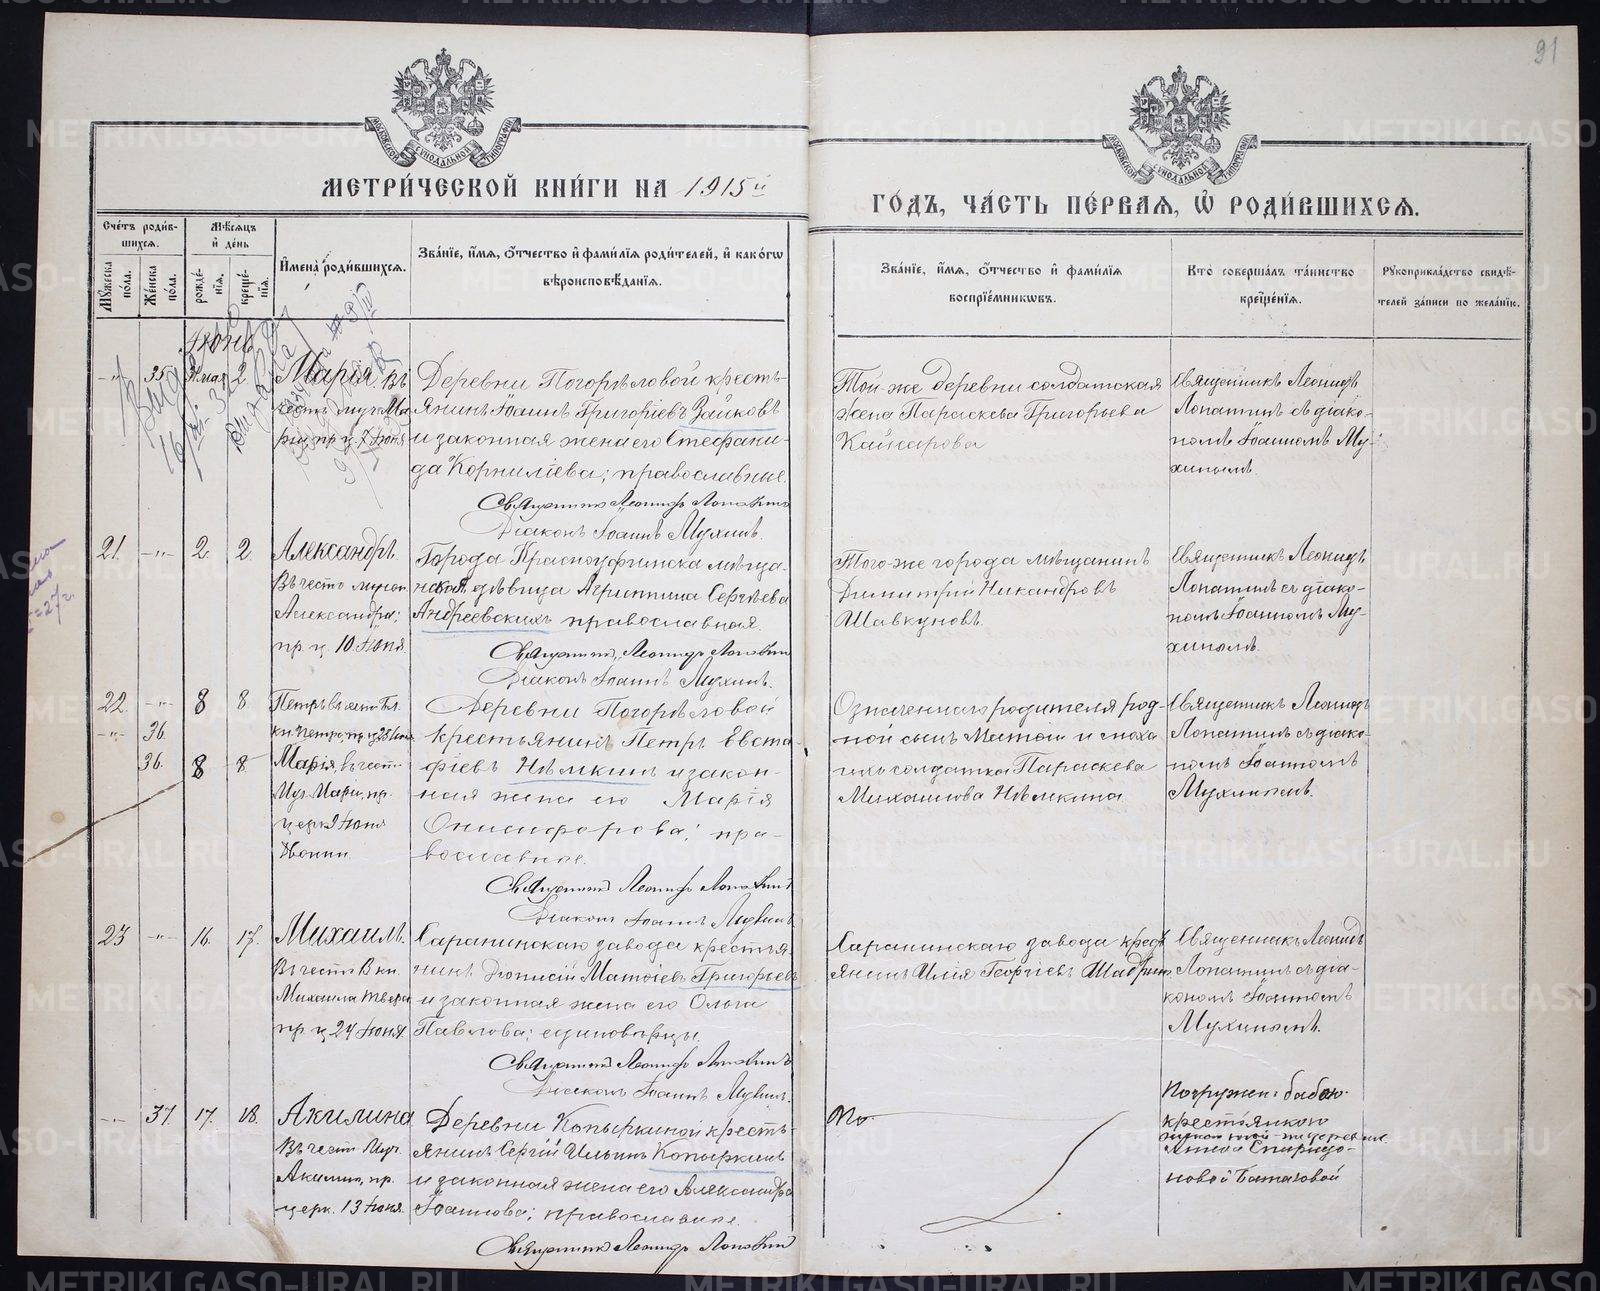 91
МОСКОВСКОЙ СѴНОДАЛЬНОЙ ТИПОГРАФІИ
МОСКОВСКОЙ СѴНОДАЛЬНОЙ ТИПОГРАФІИ
МЕТРИ́ЧЕСКОЙ КНИ́ГИ НА 1915й
ГО́ДЪ, ЧА́СТЬ ПЕ́РВАЯ, Ѡ РОДИ́ВШИХСЯ.
Сче́тъ роди́в-
шихся.
Му́жеска по́ла.
Же́нска по́ла.
Мѣ́сяцъ
и де́нь
рожде́-
нія.
креще́-
нія.
Имена̀ роди́вшихся.
Зва́ніе, и́мя, о́тчество и фами́лія роди́телей, и како́гѡ
вѣроисповѣ́данія.
Зва́ніе, и́мя, о́тчество и фами́лія
воспріе́мниковъ.
Кто̀ соверша́лъ та́инство
креще́нія.
Рукоприкла́дство свидѣ́-
телей за́писи по жела́нію.
Іюнь
-"- 35 мая 2
Марія. Въ
честь муч. Ма
ріи, пр. ц. 7 Іюня
Деревни Погорѣловой кресть-
янинъ Іоаннъ Григоріевъ Зайковъ
и законная жена его Стефани-
да Корниліева; православные.
Священникъ Леонидъ Лопатинъ
Діаконъ Іоаннъ Мухинъ.
Той-же деревни солдатская
жена Параскева Григорьева
Кайгарова
Священникъ Леонидъ
Лопатинъ съ діако-
номъ Іоанномъ Му-
хинымъ.
21. -"- 2. 2.
Александръ
Въ честь
Александра;
пр. ц. 10. Іюня.
Города Красноуфимска мѣща-
нская дѣвица Агриппина Сергѣева
Андреевскихъ православная.
Священникъ Леонидъ Лопатинъ
Діаконъ Іоаннъ Мухинъ.
Того-же города мѣщанинъ
Димитрій Никандровъ
Шавкуновъ.
Священникъ Леонидъ
Лопатинъ съ діако-
номъ Іоанномъ Му-
хинымъ.
22. -"- 8 8.
-"- 36.
36. 8 8.
Петръ въ честь Бл.
кн. Петра, пр. ц. 25 Іюня.
Марія, въ честь
Муч. Маріи, пр.
церк. 9 Іюня
Двойни.
Деревни Погорѣловой
крестьянинъ Петръ Евста-
фіевъ Нѣмкинъ и закон-
ная жена его Марія
Онисифорова; пра-
вославные.
Священникъ Леонидъ Лопатинъ
Діаконъ Іоаннъ Мухинъ
Означеннаго родителя род-
ной сынъ и сноха
ихъ солдатка Параскева
Михаилова Нѣмкина
Священникъ Леонидъ
Лопатинъ съ діако-
номъ Іоанномъ
Мухинымъ.
23 -"- 16. 17.
Михаилъ.
Въ честь В. кн.
Михаила Твер.
пр. ц. 24 Іюня.
Саранинскаго завода крестья-
нинъ Діонисій Матѳіевъ Григорьевъ
и законная жена его Ольга
Павлова; единовѣрцы.
Священникъ Леонидъ Лопатинъ
Діаконъ Іоаннъ Мухинъ.
Саранинскаго завода кресть
янинъ Илія Георгіевъ Шадринъ
Священникъ Леонидъ
Лопатинъ съ діа-
кономъ Іоанномъ
Мухинымъ.
-"- 37. 17. 18.
Акилина
Въ честь Муч.
Акилин., пр.
церк. 13 Іюня.
Деревни Копыркиной кресть-
янинъ Сергій Ильинъ Копыркинъ
и законная жена его Александра
Іоаннова; православные.
Священникъ Леонидъ Лопатинъ
Погружен. бабкою
крестьянкою
Спиридо-
новой